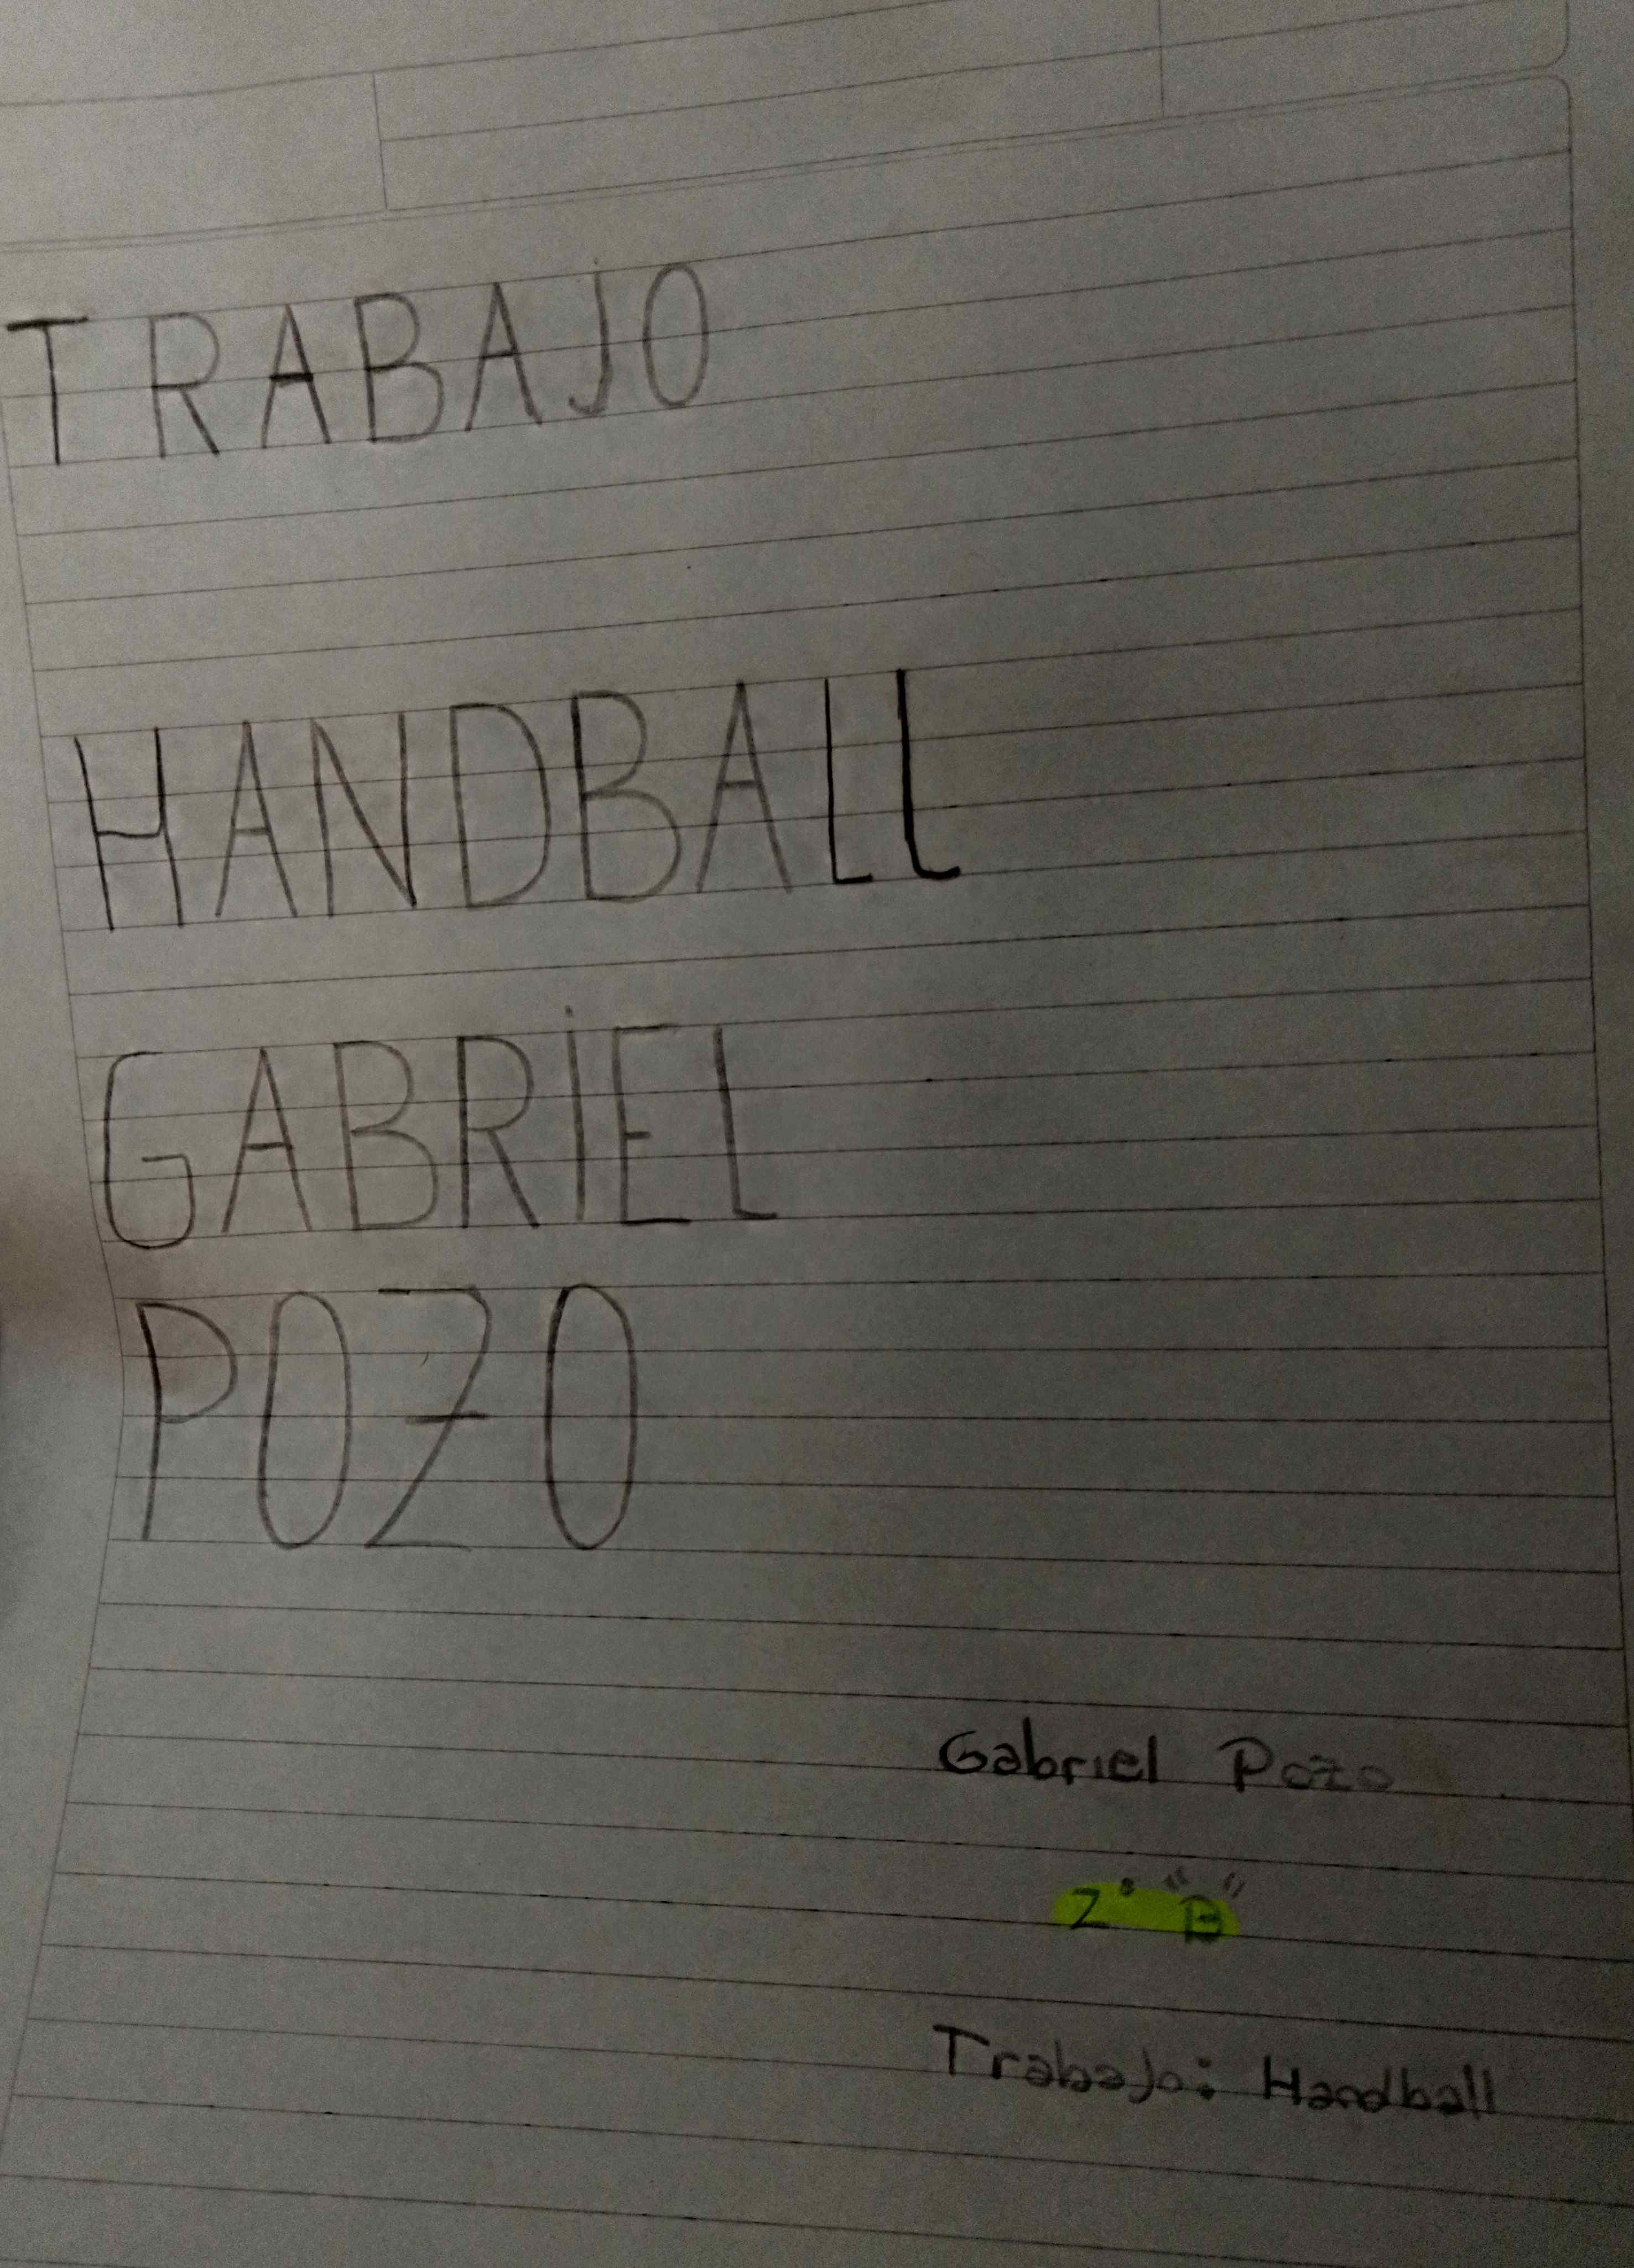 TRABAJO
HANDBALL
GABRIEL
POZO
Gabriel Pozo
2° "B"
Trabajo: Handball